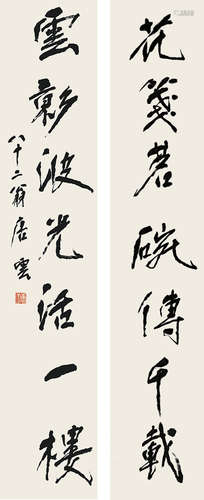 花箋茗碗傳千載
雲影波光活一樓
八十二翁唐雲